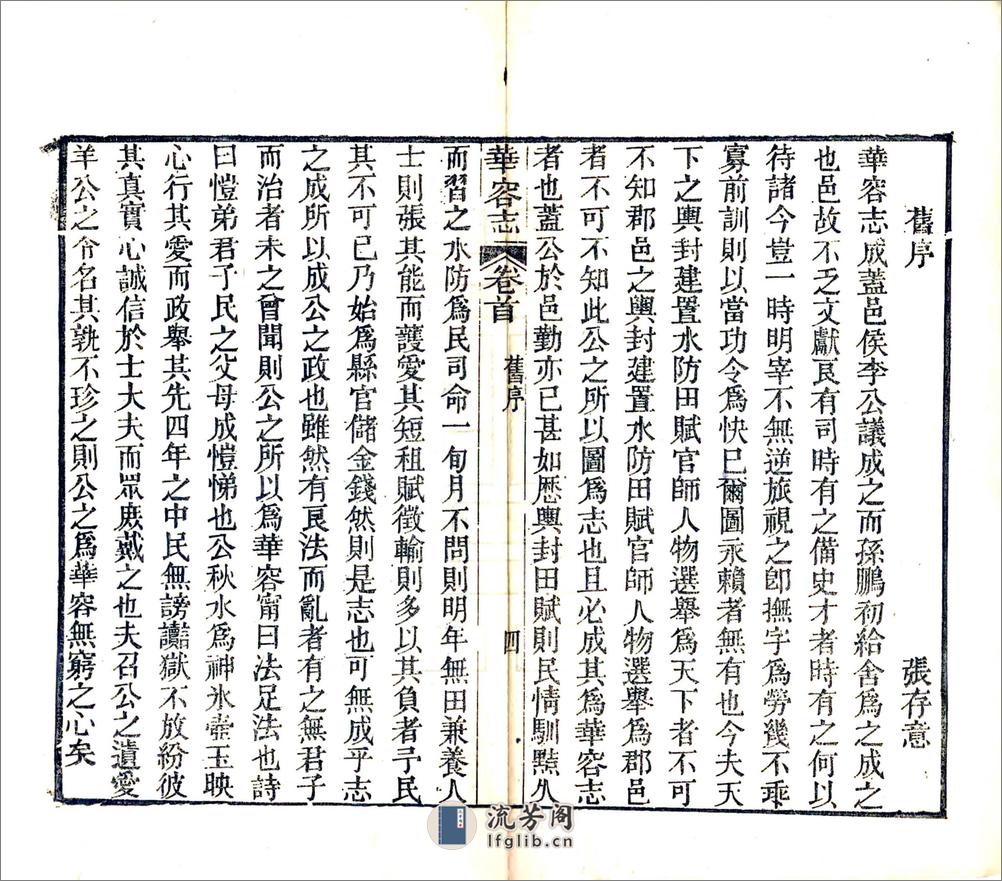 舊序
張存意
華容志成蓋邑侯李公議成之而孫鵬初給舍爲之成之
也邑故不乏文獻良有司時有之備史才者時有之何以
待諸今豈一時明宰不無逆旅視之卽撫字爲勞幾不乘
寡前訓則以當功令爲快已爾圖永賴者無有也今夫天
下之輿封建置水防田賦官師人物選舉爲天下者不可
不知郡邑之輿封建置水防田賦官師人物選舉爲郡邑
者不可不知此公之所以圖爲志也且必成其爲華容志
者也蓋公於邑勤亦已甚如歷輿封田賦則民情馴黠久
華容志
卷首
舊序
四
而習之水防爲民司命一旬月不問則明年無田兼養人
士則張其能而護愛其短租賦徵輸則多以其負者予民
其不可已乃始爲縣官儲金錢然則是志也可無成乎志
之成所以成公之政也雖然有良法而亂者有之無君子
而治者未之曾聞則公之所以爲華容甯曰法足法也詩
曰愷弟君子民之父母成愷悌也公秋水爲神氷壺玉映
心行其愛而政舉其先四年之中民無謗讟獄不放紛彼
其真實心誠信於士大夫而眾庶戴之也夫召公之遺愛
羊公之令名其孰不珍之則公之爲華容無窮之心矣
流芳阁
lfglib.cn